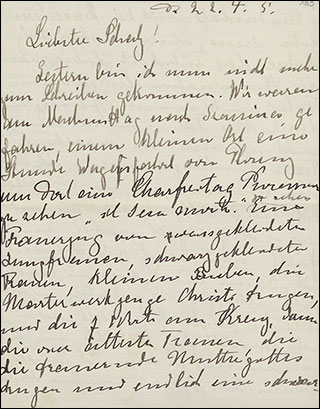 D. 22.4.5.
Liebster Schatz!
Gestern bin ich nun nicht mehr
zum Schreiben gekommen. Wir waren
am Nachmittag nach
fahren, einem kleinen Ort eine
Stunde von Florenz
um dort eine Charfreitag
zu sehen "il Gesu morto". Eine
Trauerzug von weissgekleideten
Jungfrauen, schwarzgekleideten
Frauen, kleinen Buben, die
Marterwerkzeuge Christi trugen,
und die 7 Worte am Kreuz, dann
die vier ältesten Frauen die
die trauernde Muttergottes
trugen und endlich eine